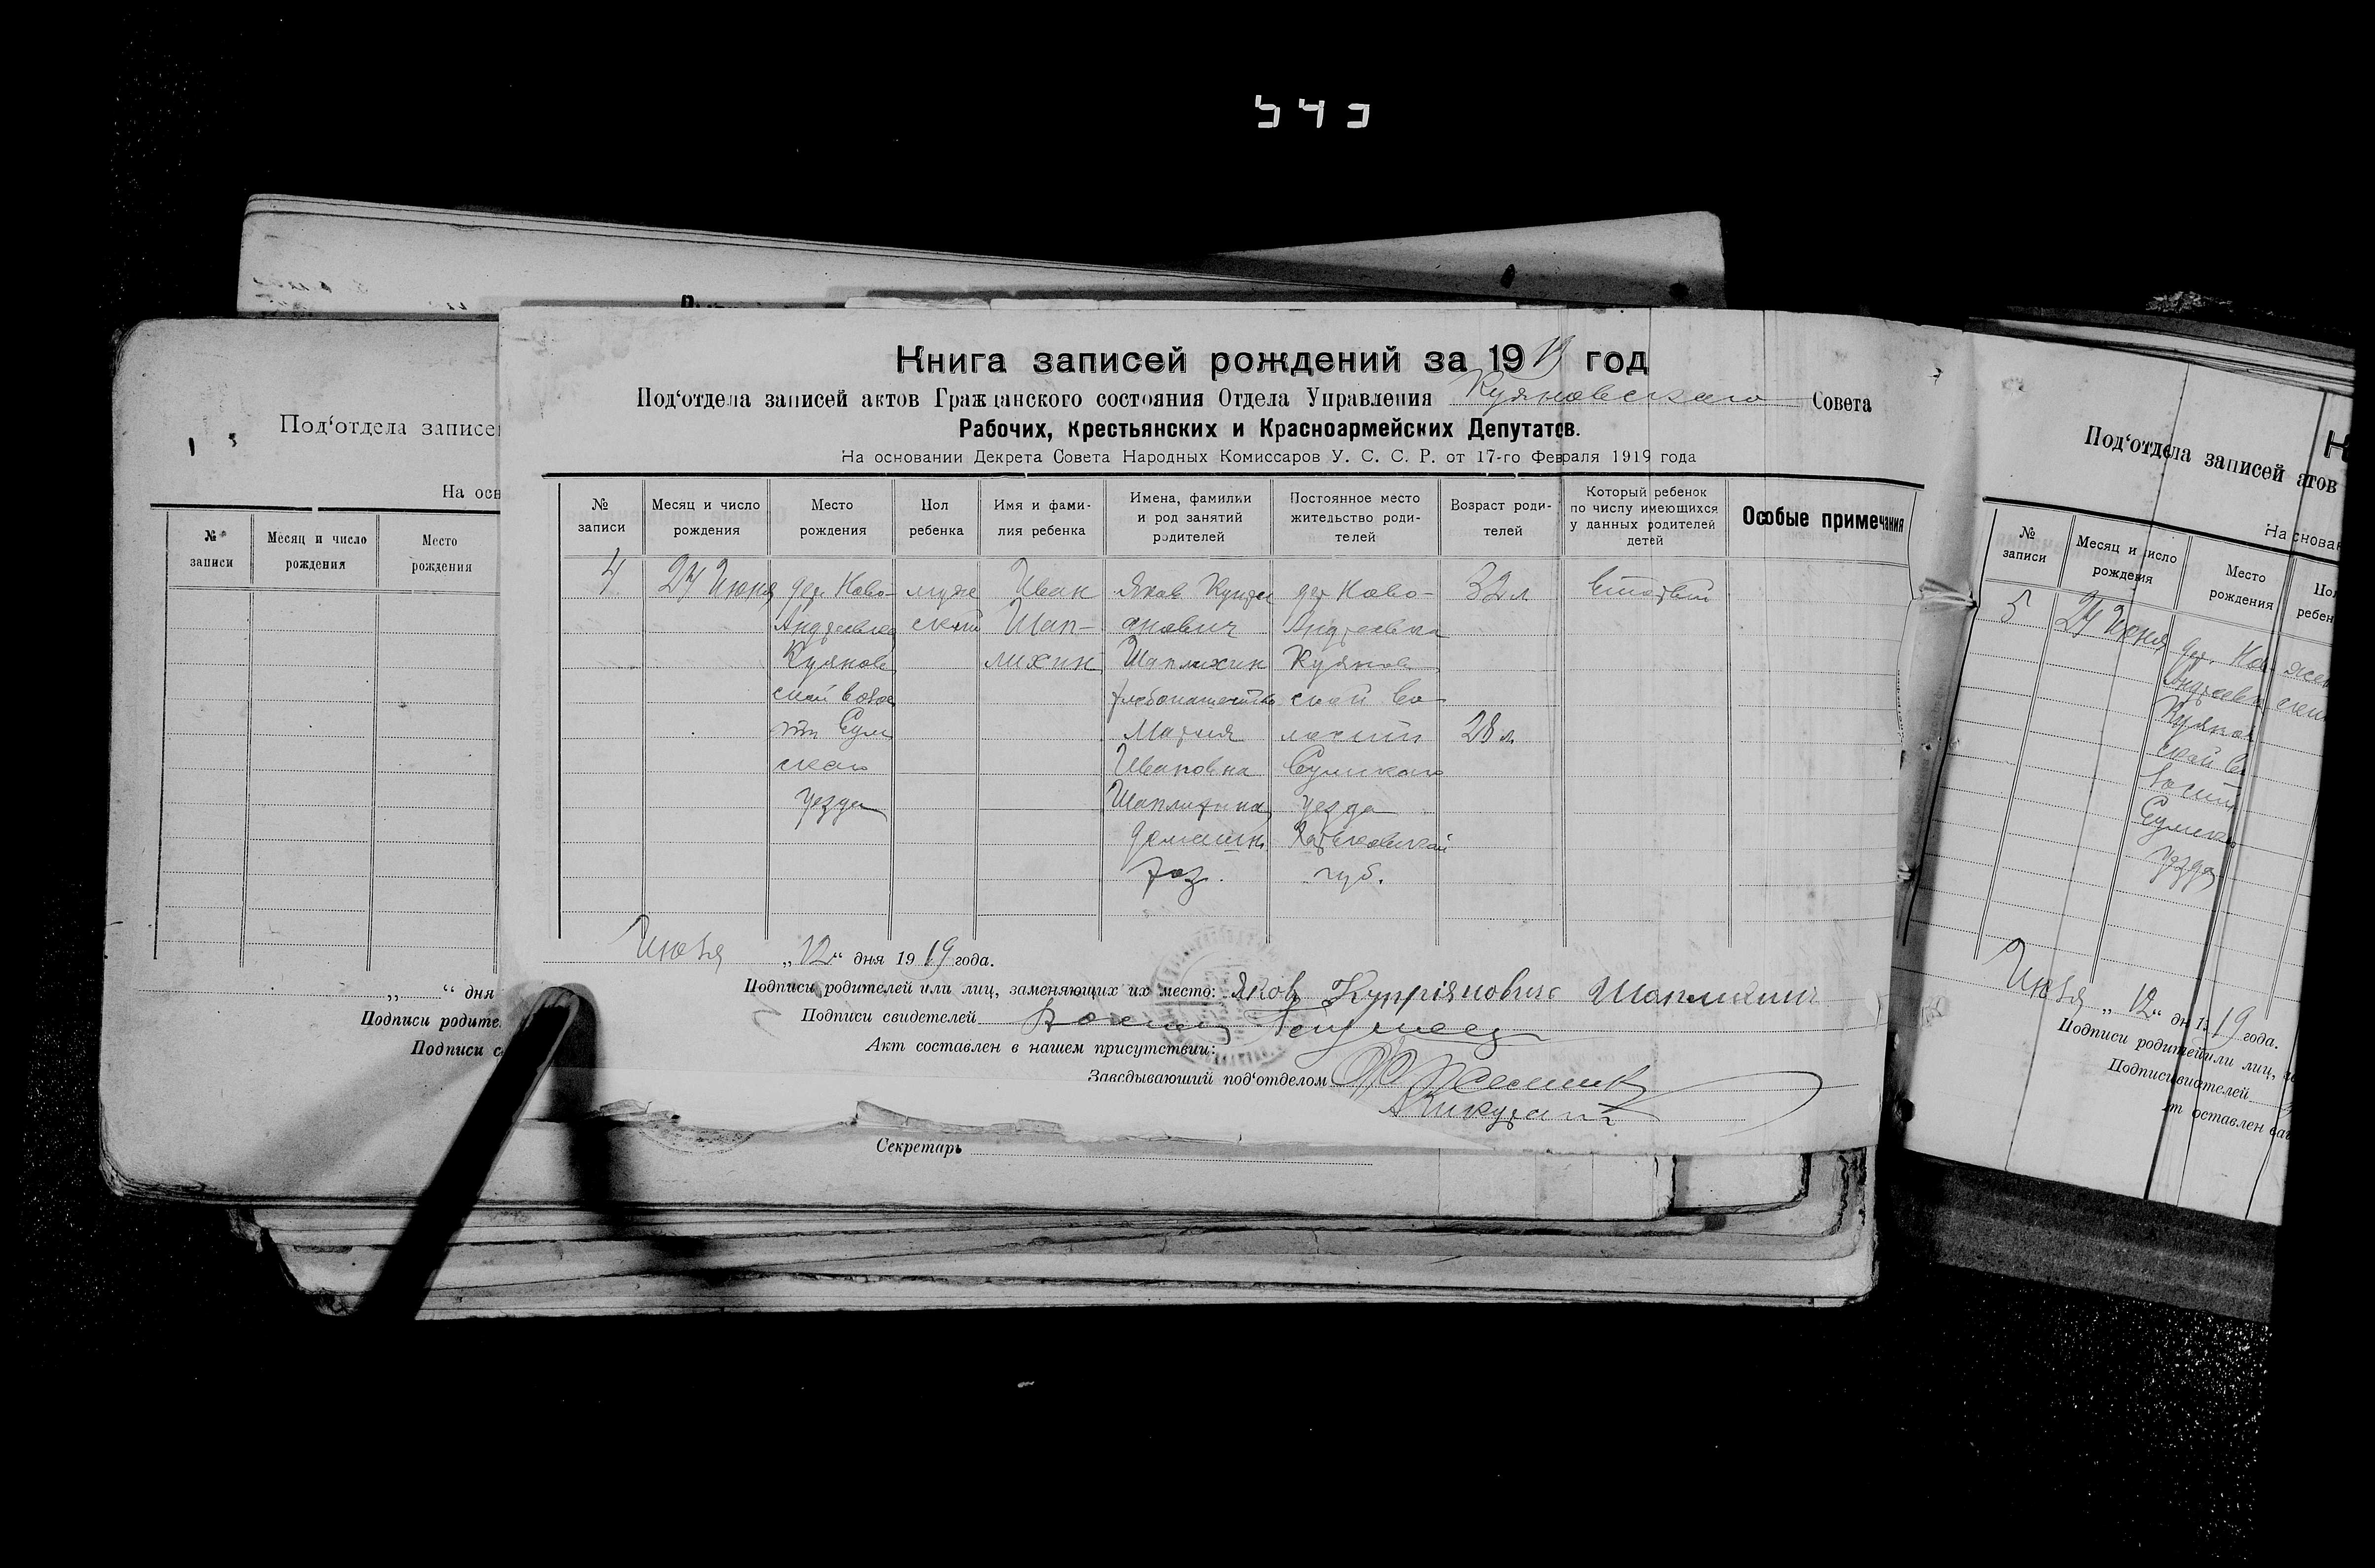 Под‘отдела записе
На осн
№
записи
Месяц и число
рождения
Место
рождения
„ “ дня
Подписи родите
Подписи с
Книга записей рождений за 1919 год
Под‘отдела записей актов Гражданского состояния Отдела Управления Куяновскаго Совета
Рабочих, Крестьянских и Красноармейских Депутатов.
На основании Декрета Совета Народных Комиссаров У. С. С. Р. от 17-го февраля 1919 года
№
записи
Месяц и число
рождения
Место
рождения
Пол
ребенка
Имя и фами-
лия ребенка
Имена, фамилии
и род занятий
родителей
Постоянное место
жительство роди-
телей
Возраст роди-
телей
Который ребенок
по числу имеющихся
у данных родителей
детей
Особые примечания
4
24 Июня
дер. Ново-
Андреевка
Куянов
ской воло
сти Сум
скаго
уезда
муже
ский
Иван
Шап-
лихин
Яков Купри
янович
Шаплихин
хлебопашество
Мария
Ивановна
Шаплихина
домашн.
хоз.
дер Ново-
Андреевка
Куянов
ской во-
лости
Сумскаго
уезда
Харьковской
губ.
32 л
28 л.
Июля „12“ дня 1919 года.
Подписи родителей или лиц, заменяющих их место: Яков Куприяновичь Шаплихин
Подписи свидетелей
Акт составлен в нашем присутствии:
Заведывающий под‘отделом
Секретарь
Под‘отдела записей
№
записи
Месяц и число
рождения
Место
рождения
5
24 Июня
дер. Ново
Андреевк
Куянов
ской во
лости
Сумска
уезда
Июля „12“ дн 1919 года.
Подписи родителей или лиц,